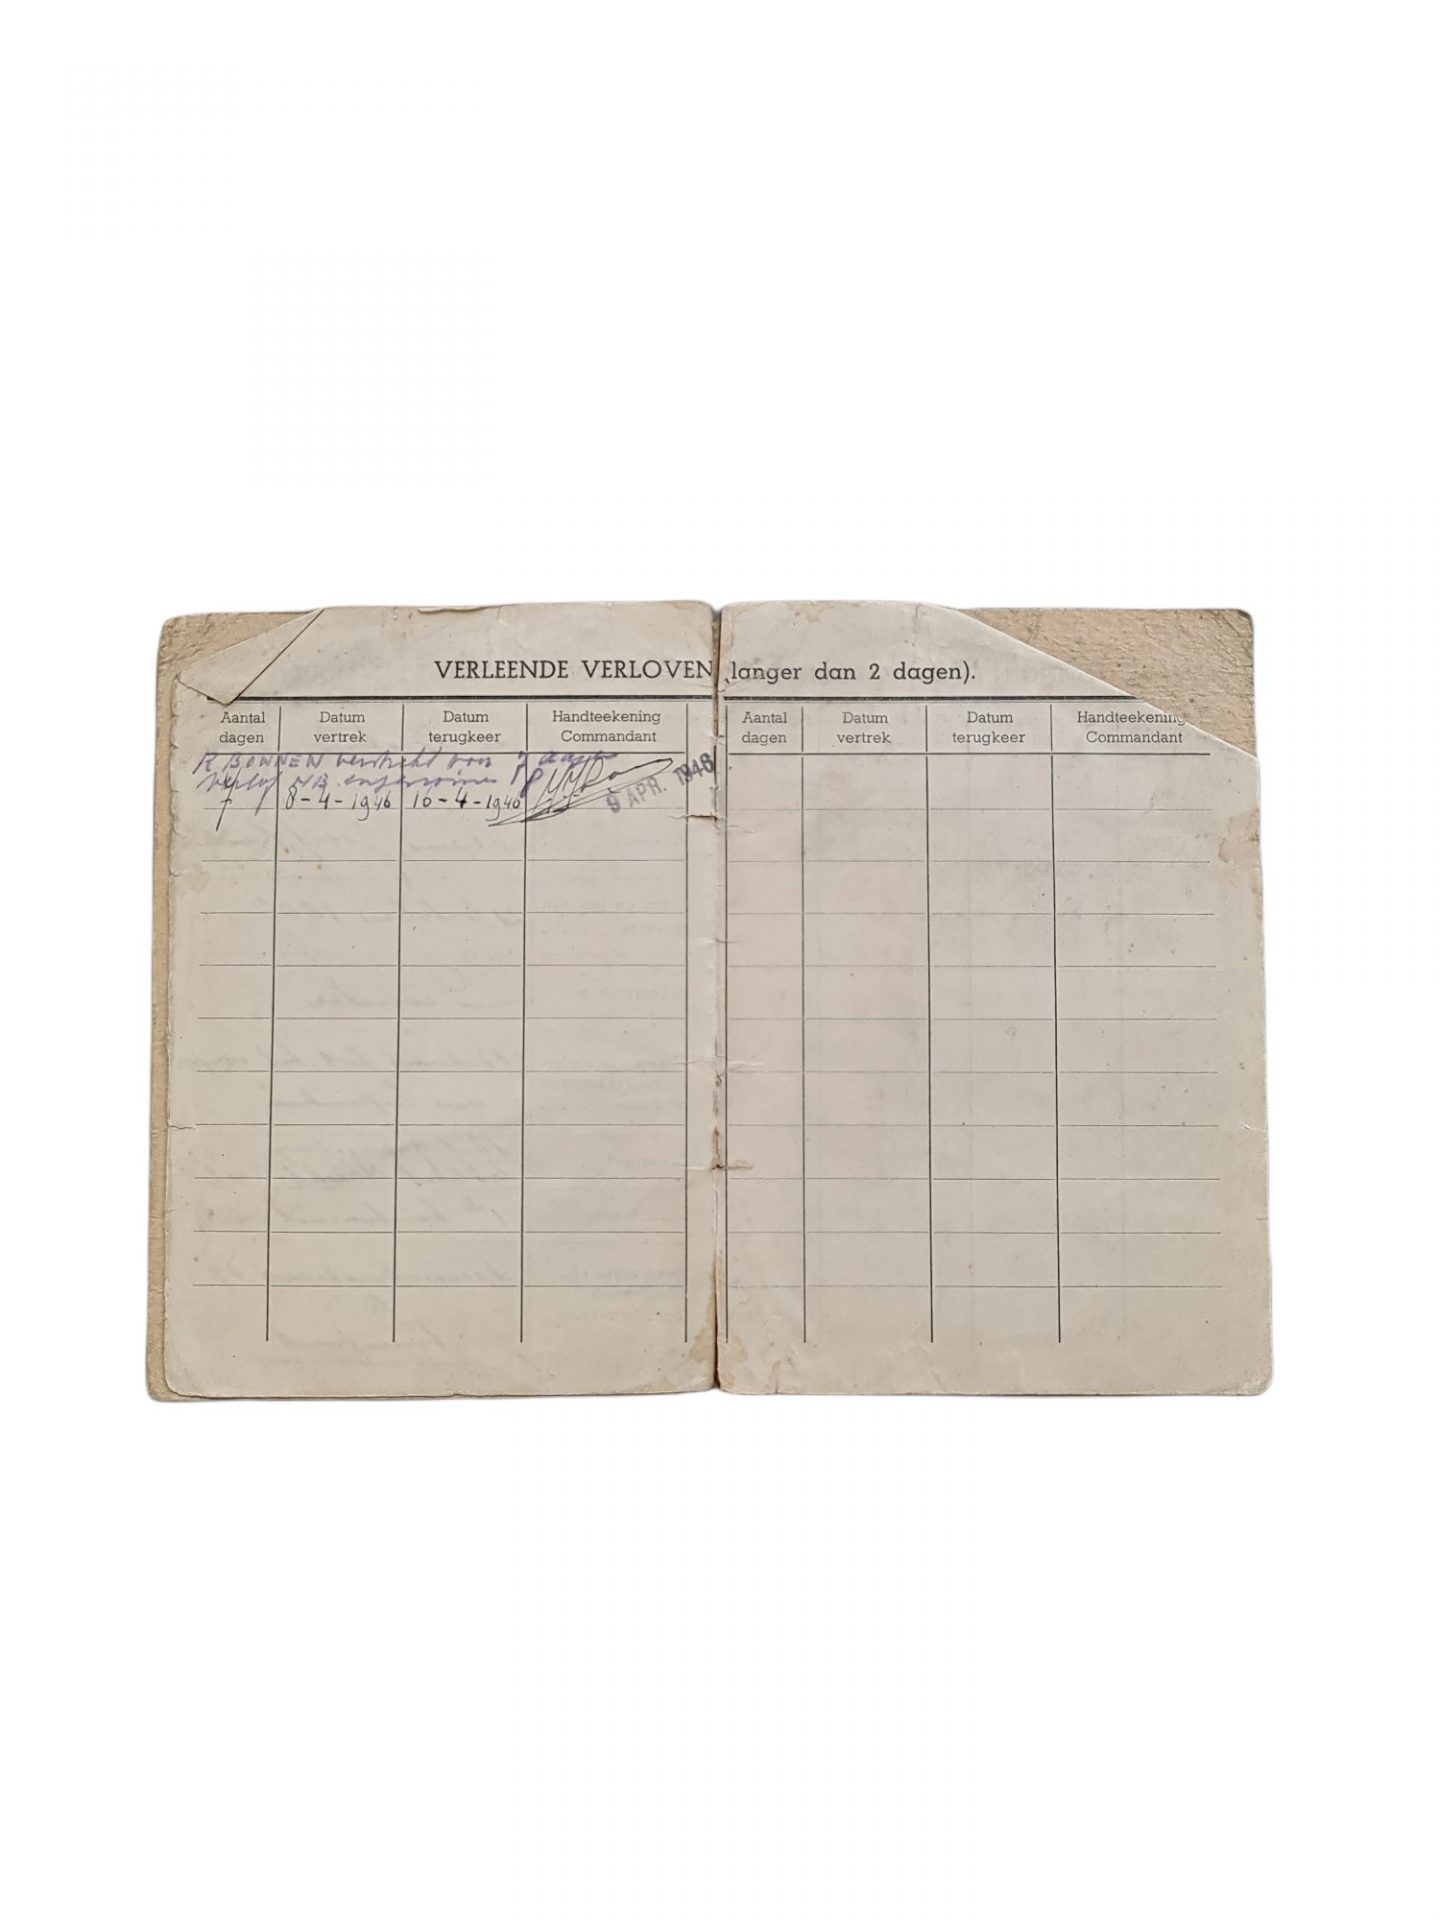 VERLEENDE VERLOVEN (langer dan 2 dagen).
Aantal dagen Datum vertrek Datum terugkeer Handteekening Commandant Aantal dagen Datum vertrek Datum terugkeer Handteekening Commandant
R BONNEN verstrekt voor 7 dagen
verlof
7 8-4-1946 16-4-1946
9 APR. 1946